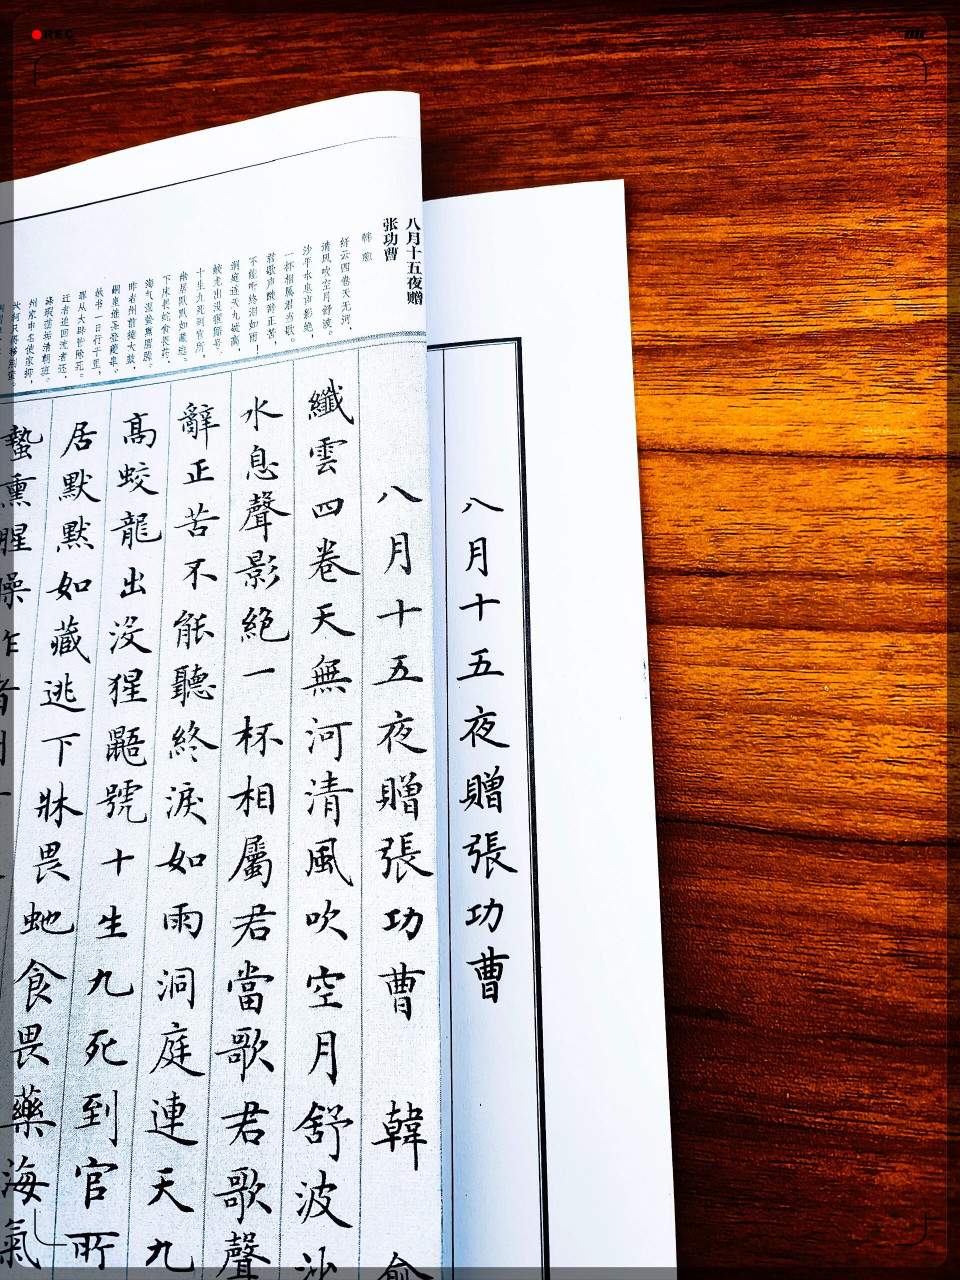 REC
八月十五夜贈張功曹
八月十五夜赠
张功曹
韩愈
纤云四卷天无河，
清风吹空月舒波。
沙平水息声影绝，
一杯相属君当歌。
君歌声酸辞正苦，
不能听终泪如雨！
洞庭连天九嶷高，
蛟龙出没猩鼯号。
十生九死到官所，
幽居默默如藏逃。
下床畏蛇食畏药，
海气湿蛰熏腥臊。
昨者州前捶大鼓，
嗣皇继圣登夔皋。
赦书一日行千里，
罪从大辟皆除死。
迁者追回流者还，
涤瑕荡垢清朝班。
州家申名使家抑，
八月十五夜贈張功曹 韓愈
纖雲四卷天無河清風吹空月舒波沙
水息聲影絕一杯相屬君當歌君歌聲
辭正苦不能聽終淚如雨洞庭連天九
高蛟龍出没猩鼯號十生九死到官所
居默默如藏逃下牀畏蛇食畏藥海氣
蟄熏腥臊昨者州